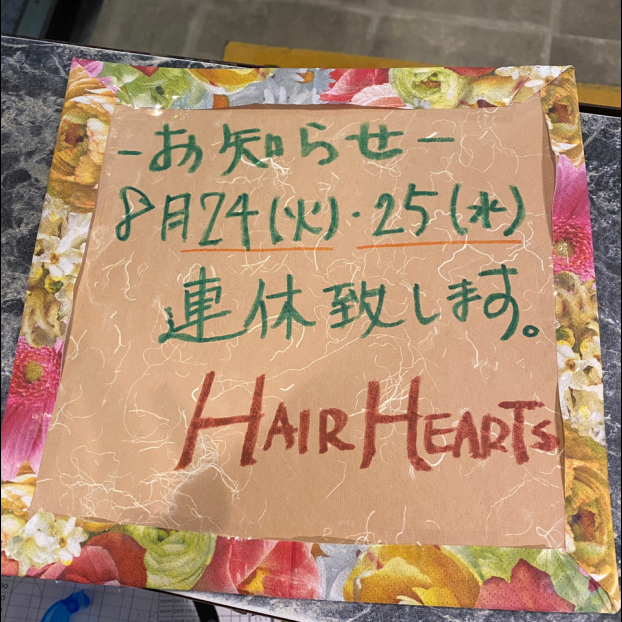 -お知らせ-
8月24(火)・25(水)
連休致します。
HAIR HEARTS